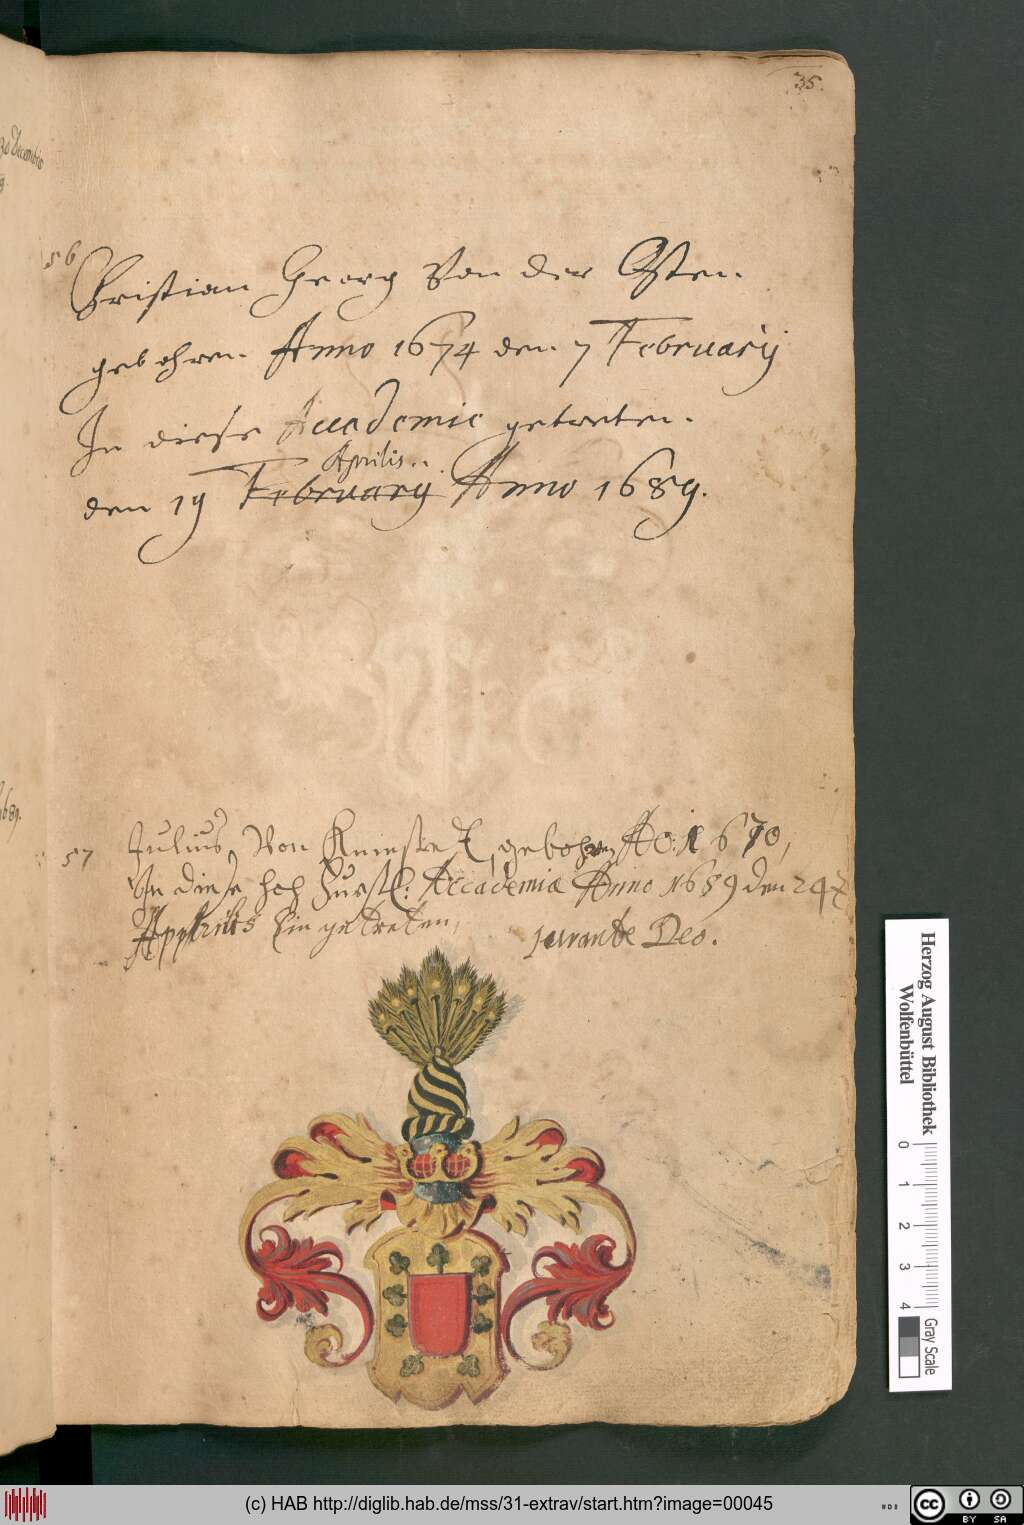 35.
30 Decembris
56
Christian Georg Von der Osten.
gebohren. Anno 1674 den. 7 February
In diese Accademie getreten.
Aprilis..
den 19 February Anno 1689.
1689.
57 Julius Von gebohren Ao: 1670,
In diese hoch Furstl: Accademiæ Anno 1689 den 24
Apprilis Ein getreten, juvante Deo.
Herzog August Bibliothek
Wolfenbüttel
0 1 2 3 4
Gray Scale
(c) HAB http://diglib.hab.de/mss/31-extrav/start.htm?image=00045
cc BY SA